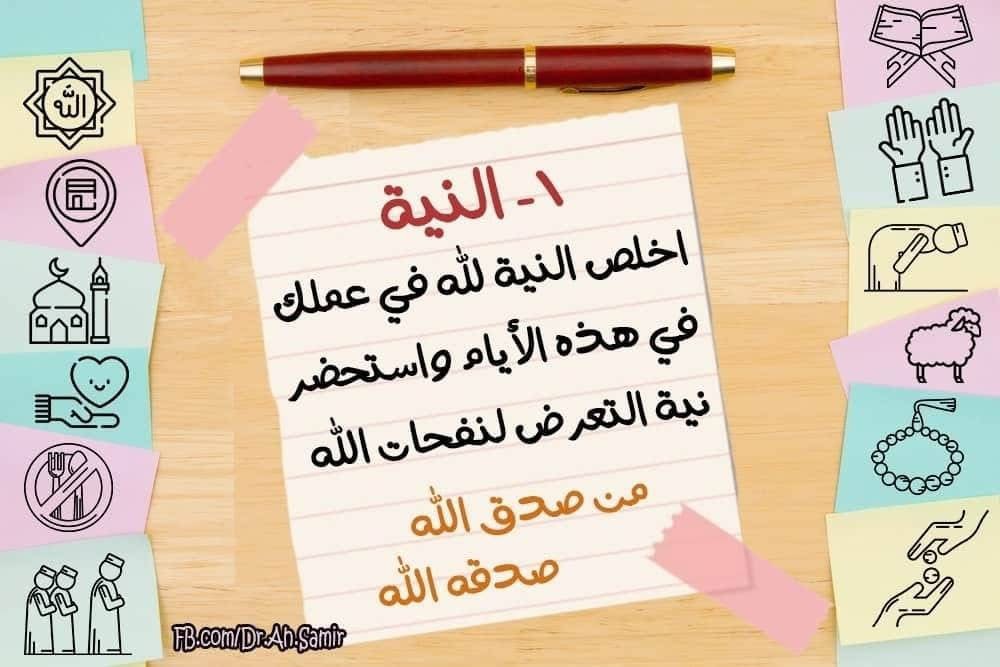 ١- النية
اخلص النية لله في عملك
في هذه الأيام واستحضر
نية التعرض لنفحات الله
من صدق الله
صدقه الله
الله
FB.com/Dr.Ah.Samir